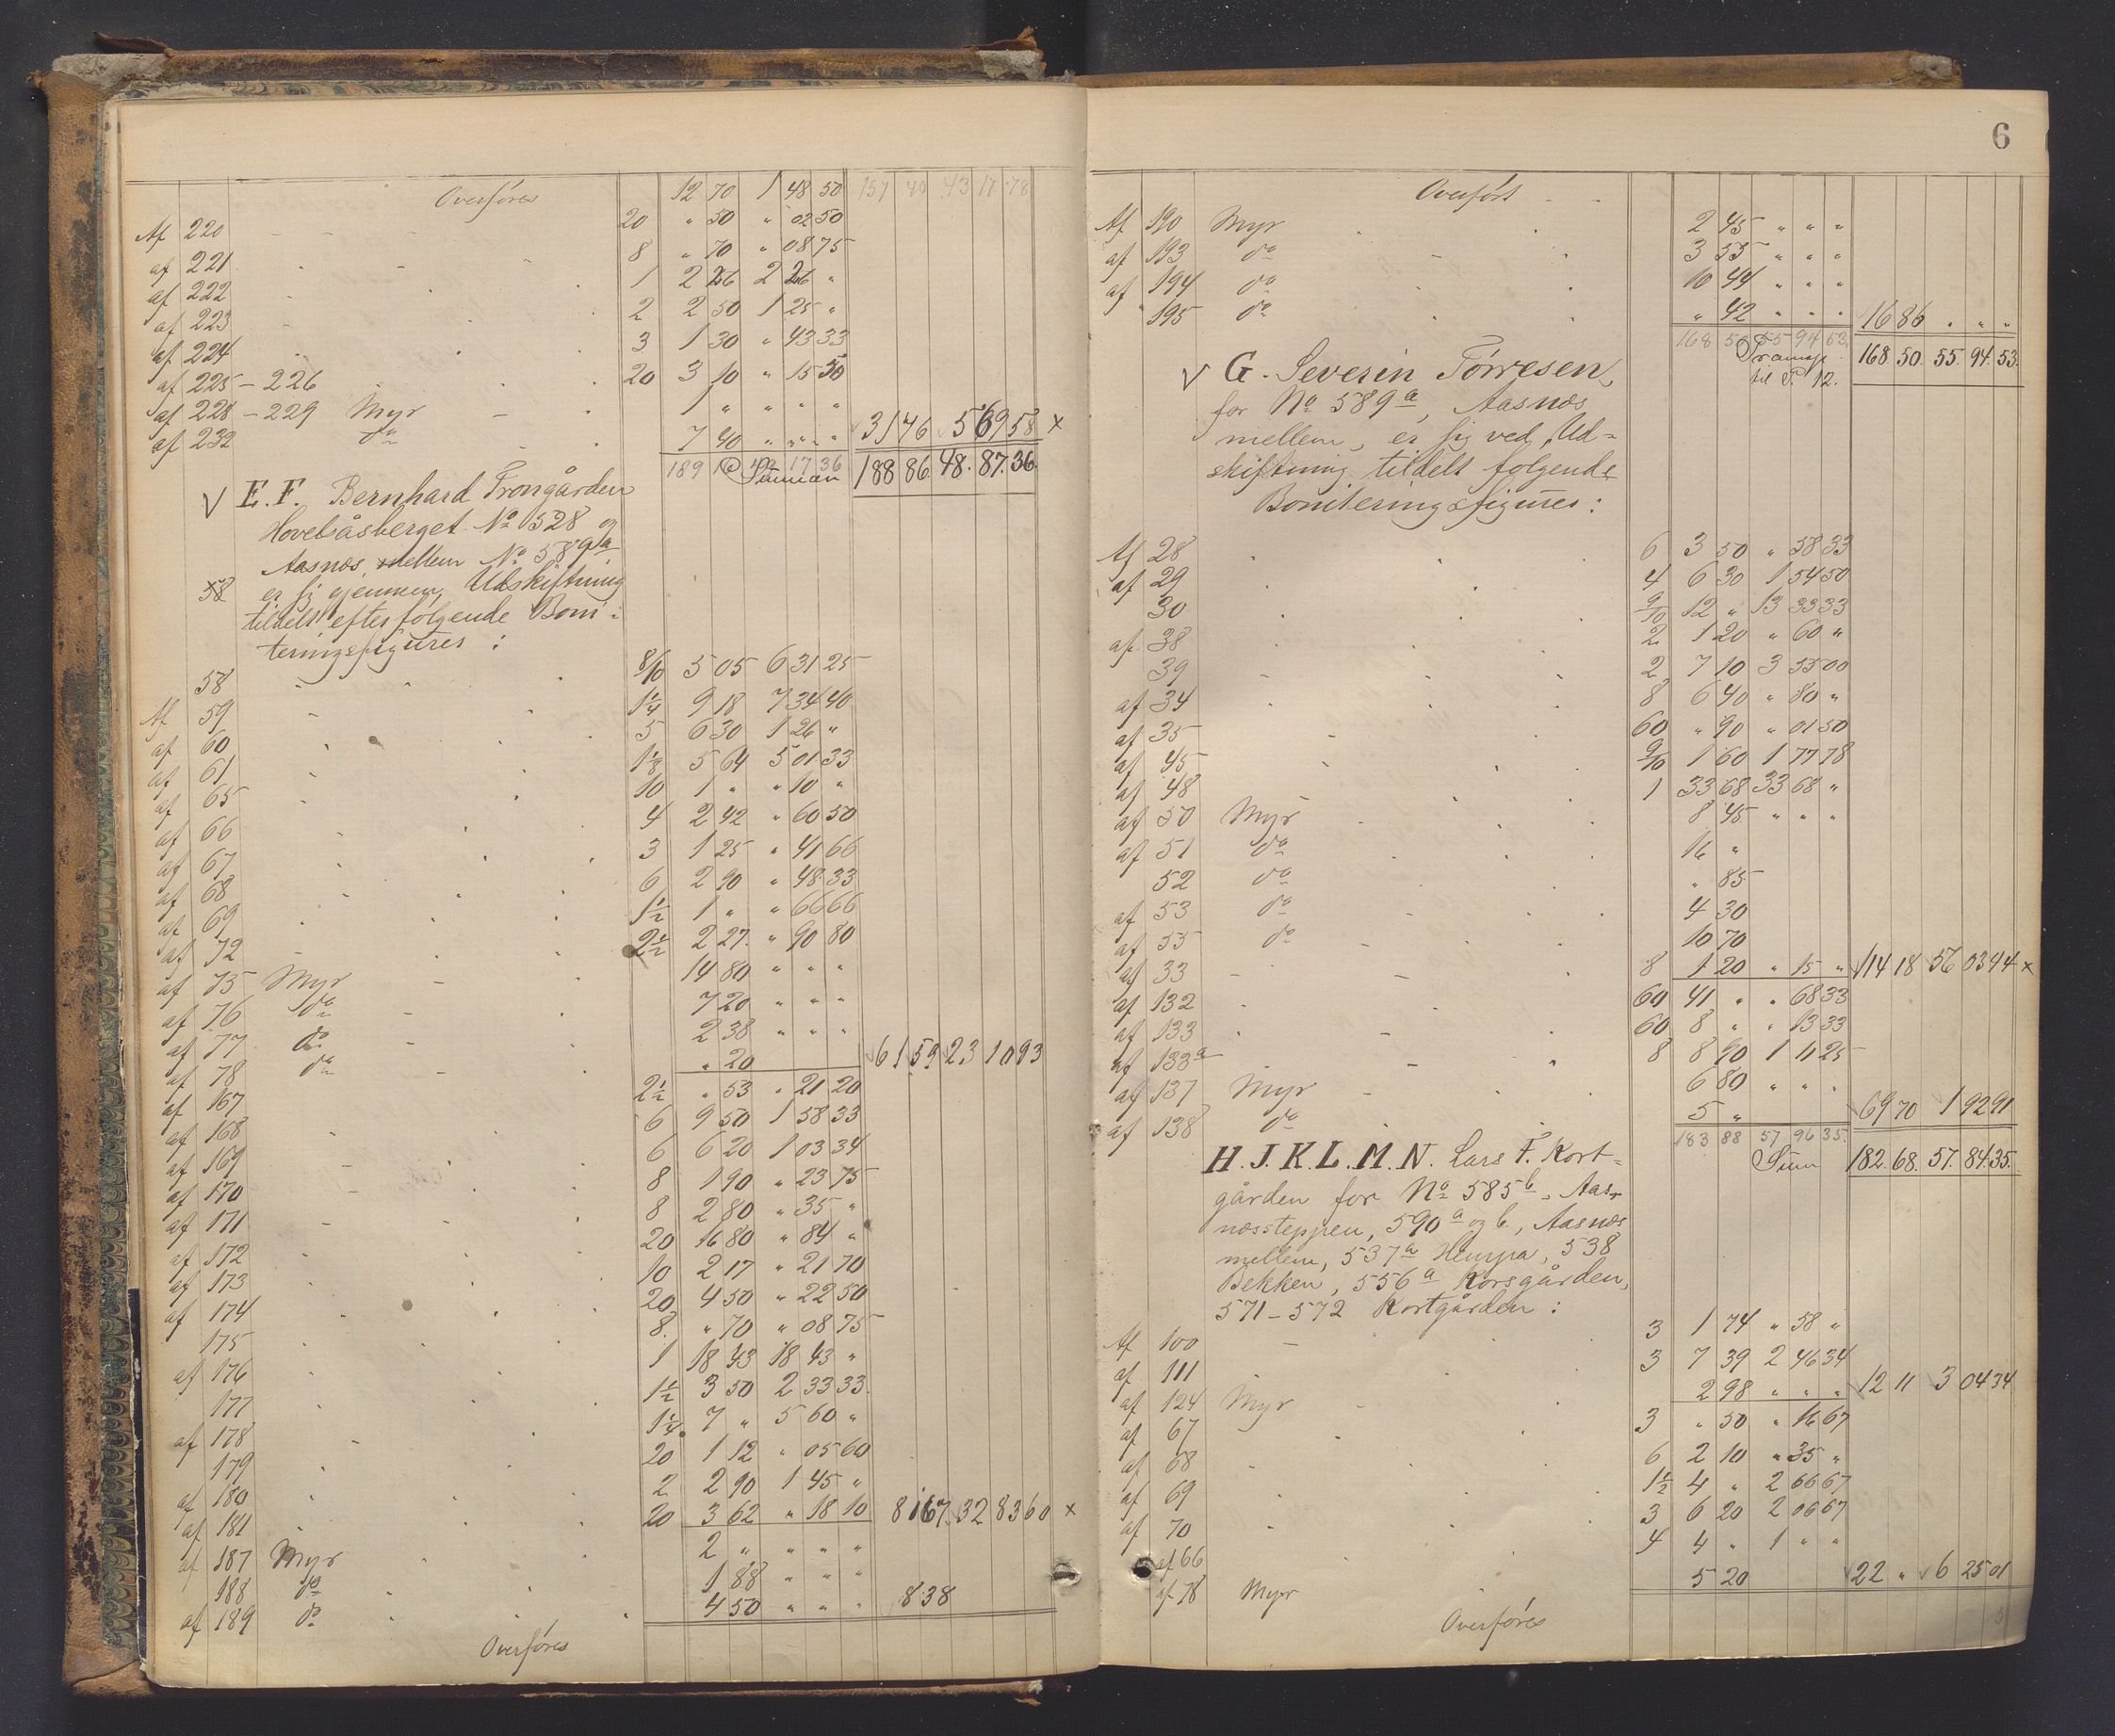 Overføres 12 70 1 48 50 157 40 43 17 78
Af 220 20 " 50 " 02 50
af 221 8 " 70 " 08 75
af 222 1 2 26 2 26 "
af 223 2 2 50 1 25 "
af 224 3 1 30 " 43 33
af 225 – 226 20 3 10 " 15 50
af 228 – 229 Myr 1 " " " "
af 232 do 7 40 " " " " 31 46 5 69 58 x
189 17 36 Summa 188 86. 48. 87. 36.
V E. F. Bernhard Frongården
Hovelsåsberget No 528 og
Aasnæs mellem No 589a
58 er sig gjennem Udskiftning
tildelt efterfølgende Boni-
teringsfigurer :
58 8/10 5 05 6 31 25
Af 59 1¼ 9 18 7 34 40
af 60 5 6 30 1 26 "
af 61 1⅛ 5 64 5 01 33
af 65 10 1 " " 10 "
af 66 4 2 42 " 60 50
af 67 3 1 25 " 41 66
af 68 6 2 90 " 48 33
af 69 1½ 1 " " 66 66
af 72 2½ 2 27 " 90 80
af 75 Myr 14 80 " " "
af 76 do 7 20 " " "
af 77 do 2 38 " " "
af 78 do " 20 61 59 23 10 93
af 167 2½ " 53 " 21 20
af 168 6 9 50 1 58 33
af 169 6 6 20 1 03 34
af 170 8 1 90 " 23 75
af 171 8 2 80 " 35 "
af 172 20 16 80 " 84 "
af 173 10 2 17 " 21 70
af 174 20 4 50 " 22 50
175 8 " 70 " 08 75
af 176 1 18 43 18 43 "
177 1½ 3 50 2 33 33
af 178 1¼ 7 " 5 60 "
179 20 1 12 " 05 60
af 180 2 2 90 1 45 "
af 181 20 3 62 " 18 10 81 67 32 83 60 x
af 187 Myr 2 " " " "
188 do 1 88 " " "
af 189 do 4 50 " " " 8 38
Overføres
6
Overført
Af 190 Myr 2 45 " " "
af 193 do 3 55 " " "
af 194 do 10 44 " " "
195 do " 42 " " " 16 86 " " "
168 50 55 94 53 Transp. til S. 12. 168 50. 55. 94. 53.
V G. Severin Tørresen,
for No 589a, Aasnæs
mellem, er sig ved Ud-
skiftning tildelt følgende
Boniteringsfigurer :
Af 28 6 3 50 " 58 33
af 29 4 6 30 1 54 50
30 9/10 12 " 13 33 33
af 38 2 1 20 " 60 "
39 2 7 10 3 55 00
af 34 8 6 40 " 80 "
af 35 60 " 90 " 01 50
af 45 9/10 1 60 1 77 78
af 48 1 33 68 33 68 "
af 50 Myr 8 45 " " "
af 51 do 16 "
52 do " 85
af 53 do 4 30
af 55 do 10 70
af 33 8 1 20 " 15 " 114 18 56 03 44 x
af 132 60 41 " " 68 33
af 133 60 8 " " 13 33
af 133a 8 8 90 1 11 25
af 137 Myr 6 80 " " "
af 138 do 5 " 69 70 1 92 91
183 88 57 96 35 Sum 182. 68. 57. 84. 35.
H. J. K. L. M. N. Lars F. Kort-
gården for No 585b, Aas-
næssteppen, 590a og b, Aasnæs
mellem, 537a Hempa, 538
Bekken, 556a Korsgården,
571 – 572 Kortgården :
Af 100 3 1 74 " 58 "
af 111 3 7 39 2 46 34
af 124 Myr 2 98 " " " 12 11 3 04 34
af 67 3 " 50 " 16 67
af 68 6 2 10 " 35 "
af 69 1½ 4 " 2 66 67
af 70 3 6 20 2 06 67
af 66 4 4 " 1 " "
af 78 Myr 5 20 22 " 6 25 01
Overføres